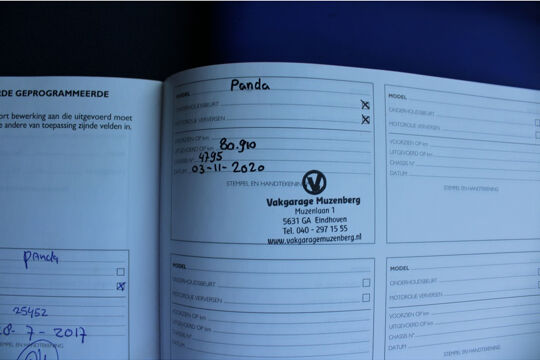 RDE GEPROGRAMMEERDE
ort bewerking aan die uitgevoerd moet
e andere van toepassing zijnde velden in.
Panda
25452
8-7-2017
STEMPEL EN HANDTEKENING
MODEL Panda
ONDERHOUDSBEURT
MOTOROLIE VERVERSEN
VOORZIEN OP km
UITGEVOERD OP km 80.910
CHASSIS N° 4795
DATUM 03-11-2020
STEMPEL EN HANDTEKENING
Vakgarage Muzenberg
Muzenlaan 1
5631 GA Eindhoven
Tel. 040 - 297 15 55
www.vakgaragemuzenberg.nl
MODEL
ONDERHOUDSBEURT
MOTOROLIE VERVERSEN
VOORZIEN OP km
UITGEVOERD OP km
CHASSIS N°
DATUM
STEMPEL EN HANDTEKENING
MODEL
ONDERHOUDSBEURT
MOTOROLIE VERVERSEN
VOORZIEN OP km
UITGEVOERD OP km
CHASSIS N°
DATUM
MODEL
ONDERHOUDSBEURT
MOTOROLIE VERVERSEN
VOORZIEN OP km
UITGEVOERD OP km
CHASSIS N°
DATUM